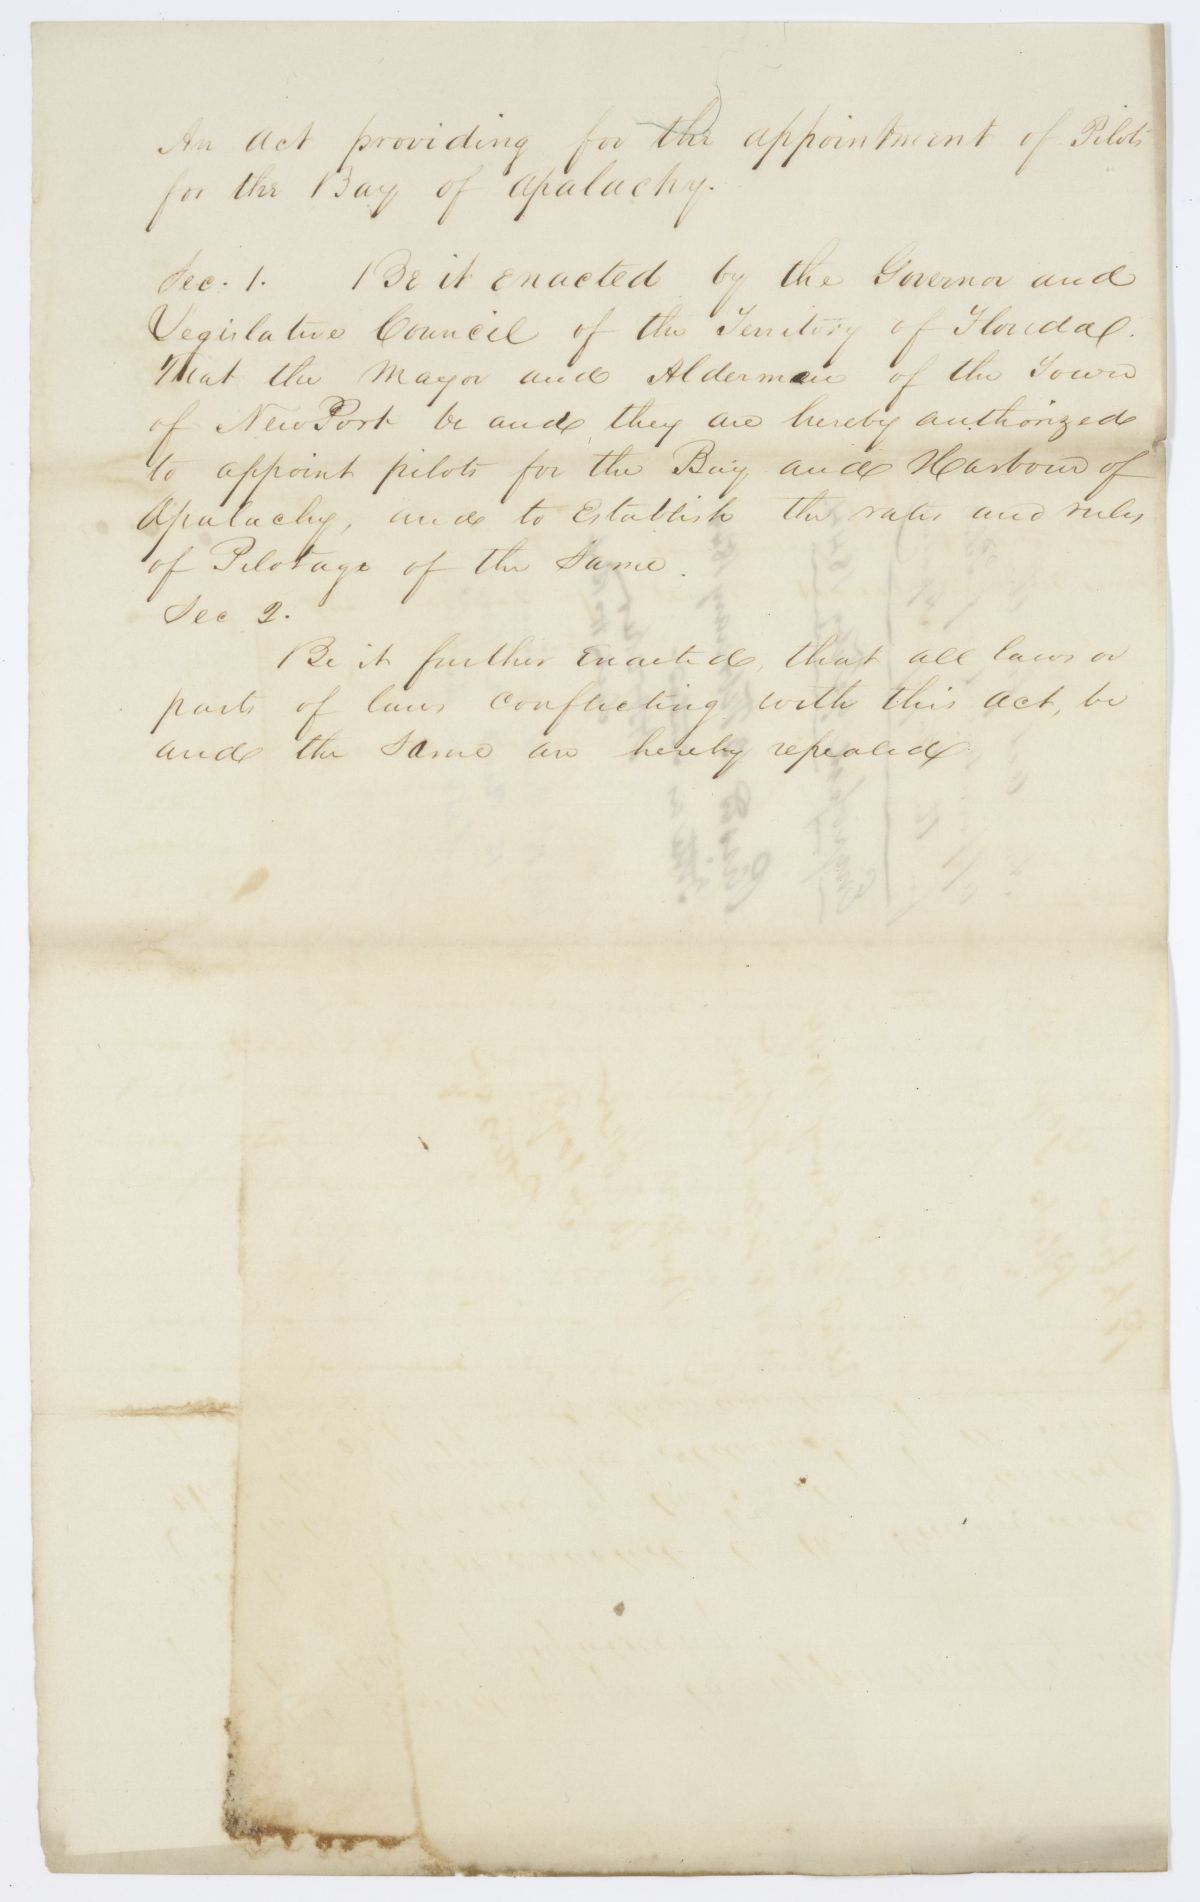 An act providing for the appointment of Pilots
for the Bay of Apalachy.
Sec. 1. Be it enacted by the Governor and
Legislative Council of the Territory of Florida.
That the Mayor and Aldermen of the Town
of New Port be and they are hereby authorized
to appoint pilots for the Bay and Harbour of
Apalachy, and to Establish the rates and rules
of Pilotage of the Same.
Sec 2.
Be it further enacted, that all laws or
parts of laws conflicting with this act, be
and the Same are hereby repealed